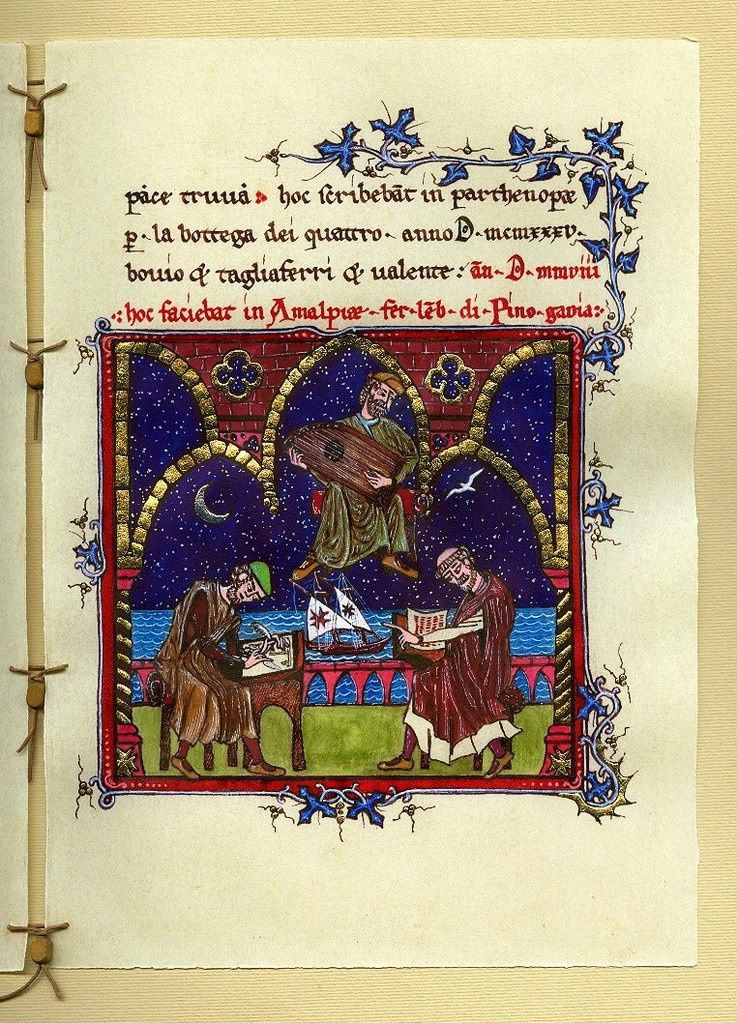 pàce truuà : hoc scribebāt in parthenopæ
p̱ · la bottega dei quattro · anno D · mcmxxxv ·
bouio & tagliaferri & ualente : ān · D · mmviii
·: hoc faciebat in Amalphiæ · fer · lēb · di · Pino · gauia :·